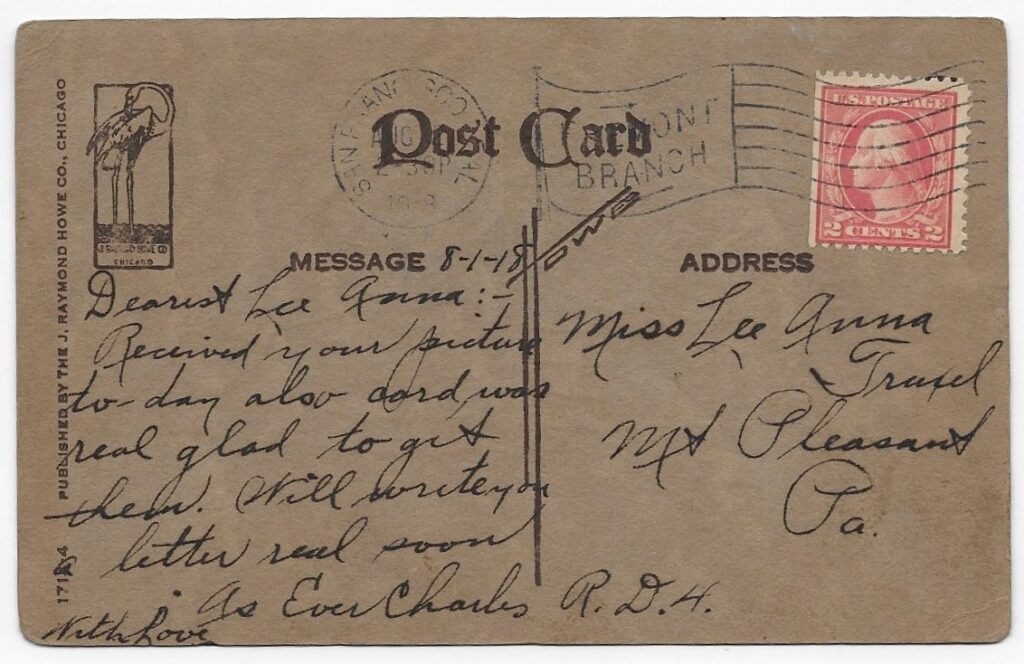 PUBLISHED BY THE J. RAYMOND HOWE CO., CHICAGO
J. RAYMOND HOWE CO
CHICAGO
Post Card
BRANCH
U.S. POSTAGE
2 CENTS 2
HOWE
MESSAGE 8-1-18
Dearest Lee Anna:-
Received your picture
to-day also card, was
real glad to get
them. Will write you
letter real soon
As Ever Charles
With Love
ADDRESS
Miss Lee Anna
Truxel
Mt Pleasant
Pa.
R.D.4.